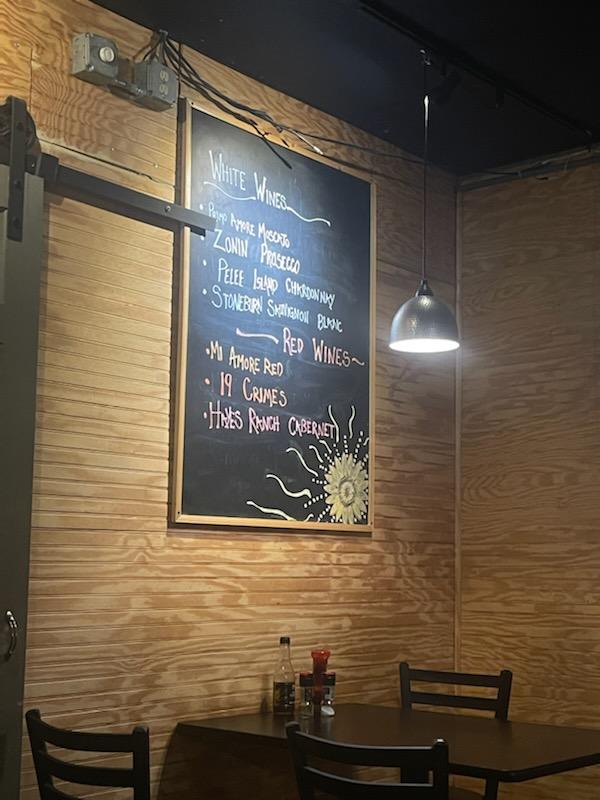 White Wines
• Primo Amore Moscato
• Zonin Prosecco
• Pelee Island Chardonnay
• Stoneburn Sauvignon Blanc
~ Red Wines ~
• Mi Amore Red
• 19 Crimes
• Hayes Ranch Cabernet